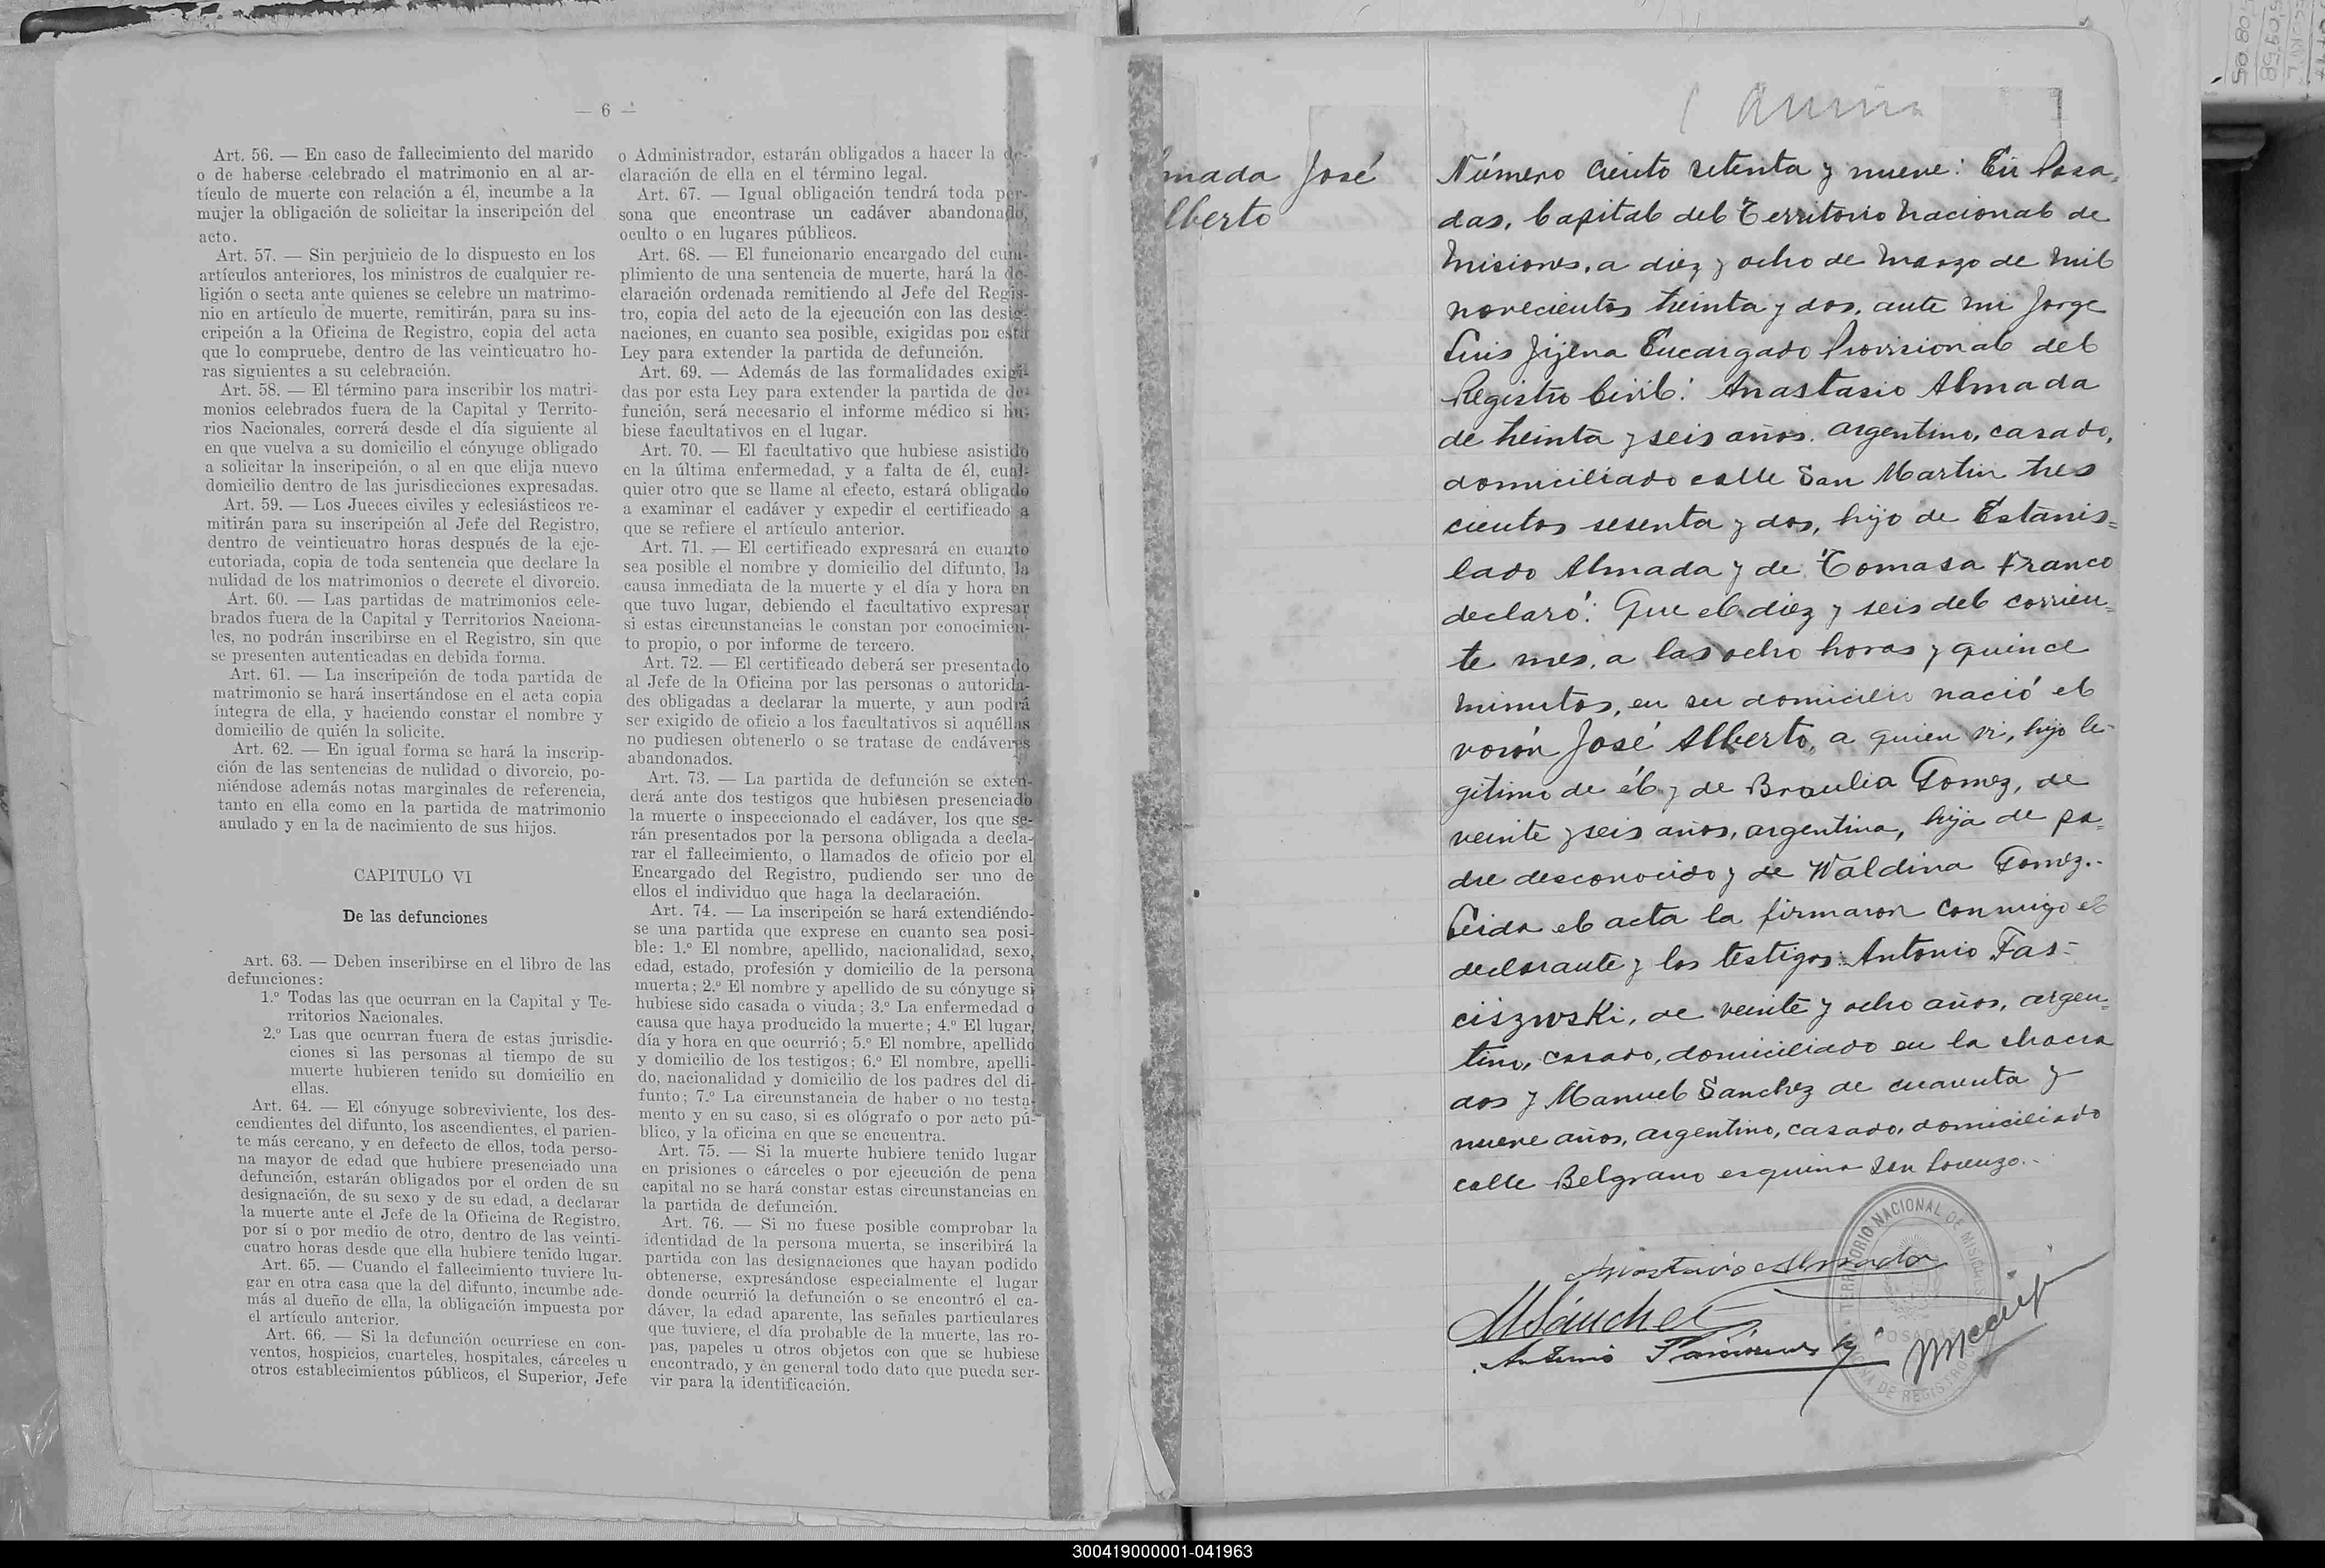 — 6 —
Art. 56. — En caso de fallecimiento del marido
o de haberse celebrado el matrimonio en al ar-
tículo de muerte con relación a él, incumbe a la
mujer la obligación de solicitar la inscripción del
acto.
Art. 57. — Sin perjuicio de lo dispuesto en los
artículos anteriores, los ministros de cualquier re-
ligión o secta ante quienes se celebre un matrimo-
nio en artículo de muerte, remitirán, para su ins-
cripción a la Oficina de Registro, copia del acta
que lo compruebe, dentro de las veinticuatro ho-
ras siguientes a su celebración.
Art. 58. — El término para inscribir los matri-
monios celebrados fuera de la Capital y Territo-
rios Nacionales, correrá desde el día siguiente al
en que vuelva a su domicilio el cónyuge obligado
a solicitar la inscripción, o al en que elija nuevo
domicilio dentro de las jurisdicciones expresadas.
Art. 59. — Los Jueces civiles y eclesiásticos re-
mitirán para su inscripción al Jefe del Registro,
dentro de veinticuatro horas después de la eje-
cutoriada, copia de toda sentencia que declare la
nulidad de los matrimonios o decrete el divorcio.
Art. 60. — Las partidas de matrimonios cele-
brados fuera de la Capital y Territorios Naciona-
les, no podrán inscribirse en el Registro, sin que
se presenten autenticadas en debida forma.
Art. 61. — La inscripción de toda partida de
matrimonio se hará insertándose en el acta copia
íntegra de ella, y haciendo constar el nombre y
domicilio de quién la solicite.
Art. 62. — En igual forma se hará la inscrip-
ción de las sentencias de nulidad o divorcio, po-
niéndose además notas marginales de referencia,
tanto en ella como en la partida de matrimonio
anulado y en la de nacimiento de sus hijos.
CAPITULO VI
De las defunciones
Art. 63. — Deben inscribirse en el libro de las
defunciones:
1.º Todas las que ocurran en la Capital y Te-
rritorios Nacionales.
2.º Las que ocurran fuera de estas jurisdic-
ciones si las personas al tiempo de su
muerte hubieren tenido su domicilio en
ellas.
Art. 64. — El cónyuge sobreviviente, los des-
cendientes del difunto, los ascendientes, el parien-
te más cercano, y en defecto de ellos, toda perso-
na mayor de edad que hubiere presenciado una
defunción, estarán obligados por el orden de su
designación, de su sexo y de su edad, a declarar
la muerte ante el Jefe de la Oficina de Registro,
por sí o por medio de otro, dentro de las veinti-
cuatro horas desde que ella hubiere tenido lugar.
Art. 65. — Cuando el fallecimiento tuviere lu-
gar en otra casa que la del difunto, incumbe ade-
más al dueño de ella, la obligación impuesta por
el artículo anterior.
Art. 66. — Si la defunción ocurriese en con-
ventos, hospicios, cuarteles, hospitales, cárceles u
otros establecimientos públicos, el Superior, Jefe
o Administrador, estarán obligados a hacer la de-
claración de ella en el término legal.
Art. 67. — Igual obligación tendrá toda per-
sona que encontrase un cadáver abandonado,
oculto o en lugares públicos.
Art. 68. — El funcionario encargado del cum-
plimiento de una sentencia de muerte, hará la de-
claración ordenada remitiendo al Jefe del Regis-
tro, copia del acto de la ejecución con las desig-
naciones, en cuanto sea posible, exigidas por esta
Ley para extender la partida de defunción.
Art. 69. — Además de las formalidades exigi-
das por esta Ley para extender la partida de de-
función, será necesario el informe médico si hu-
biese facultativos en el lugar.
Art. 70. — El facultativo que hubiese asistido
en la última enfermedad, y a falta de él, cual-
quier otro que se llame al efecto, estará obligado
a examinar el cadáver y expedir el certificado a
que se refiere el artículo anterior.
Art. 71. — El certificado expresará en cuanto
sea posible el nombre y domicilio del difunto, la
causa inmediata de la muerte y el día y hora en
que tuvo lugar, debiendo el facultativo expresar
si estas circunstancias le constan por conocimien-
to propio, o por informe de tercero.
Art. 72. — El certificado deberá ser presentado
al Jefe de la Oficina por las personas o autorida-
des obligadas a declarar la muerte, y aun podrá
ser exigido de oficio a los facultativos si aquéllas
no pudiesen obtenerlo o se tratase de cadáveres
abandonados.
Art. 73. — La partida de defunción se exten-
derá ante dos testigos que hubiesen presenciado
la muerte o inspeccionado el cadáver, los que se-
rán presentados por la persona obligada a decla-
rar el fallecimiento, o llamados de oficio por el
Encargado del Registro, pudiendo ser uno de
ellos el individuo que haga la declaración.
Art. 74. — La inscripción se hará extendiéndo-
se una partida que exprese en cuanto sea posi-
ble: 1.º El nombre, apellido, nacionalidad, sexo,
edad, estado, profesión y domicilio de la persona
muerta; 2.º El nombre y apellido de su cónyuge si
hubiese sido casada o viuda; 3.º La enfermedad o
causa que haya producido la muerte; 4.º El lugar,
día y hora en que ocurrió; 5.º El nombre, apellido
y domicilio de los testigos; 6.º El nombre, apelli-
do, nacionalidad y domicilio de los padres del di-
funto; 7.º La circunstancia de haber o no testa-
mento y en su caso, si es ológrafo o por acto pú-
blico, y la oficina en que se encuentra.
Art. 75. — Si la muerte hubiere tenido lugar
en prisiones o cárceles o por ejecución de pena
capital no se hará constar estas circunstancias en
la partida de defunción.
Art. 76. — Si no fuese posible comprobar la
identidad de la persona muerta, se inscribirá la
partida con las designaciones que hayan podido
obtenerse, expresándose especialmente el lugar
donde ocurrió la defunción o se encontró el ca-
dáver, la edad aparente, las señales particulares
que tuviere, el día probable de la muerte, las ro-
pas, papeles u otros objetos con que se hubiese
encontrado, y en general todo dato que pueda ser-
vir para la identificación.
mada José
lberto
Número ciento setenta y nueve: En Posa=
das, Capital del Territorio Nacional de
Misiones, a diez y ocho de Marzo de mil
novecientos treinta y dos, ante mi Jorge
Luis Jijena Encargado Provisional del
Registro Civil: Anastasio Almada
de treinta y seis años, argentino, casado,
domiciliado calle San Martin tres
cientos sesenta y dos, hijo de Estanis=
lado Almada y de Tomasa Franco
declaró: Que el diez y seis del corrien=
te mes, a las ocho horas y quince
minutos, en su domicilio nació el
varón José Alberto, a quien vi, hijo le-
gitimo de él y de Braulia Gomez, de
veinte y seis años, argentina, hija de pa=
dre desconocido y de Waldina Gomez.-
Leida el acta la firmaron conmigo el
declarante y los testigos: Antonio Fas=
ciszwski, de veinte y ocho años, argen=
tino, casado, domiciliado en la chacra
dos y Manuel Sanchez de cuarenta y
nueve años, argentino, casado, domiciliado
calle Belgrano esquina San Lorenzo.-
Anastasio Almada
MSánchez
Antonio
TERRITORIO NACIONAL DE MISIONES
POSADAS
300419000001-041963